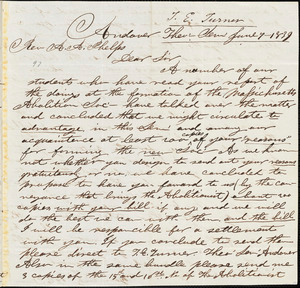 T. E. Turner
Andover Theo. Sem June 7 - 1839
Rev A. A. Phelps
Dear Sir
A number of our
students who have read your report of
the doings at the formation of the Massachusetts
Abolition Soc. have talked over the matter
and concluded that we might circulate to
advantage in this Sem and among our
acquaintance at least copies of your "reasons"
for forming the new Soc. As we know
not whether you design to send out your reasons
gratuitous or no, we have concluded to
propose to have you forward to us (by the con
veyance that brings the Abolitionist) about
copies with your bill if any and we will
do the best we can with them and the bill
I will be responsible for a settlement
with you. If you conclude to send them
please direct to T. E. Turner Theo. Sem Andover
Also in the same bundle please send me
3 copies of the 15th and 16th of The Abolitionist